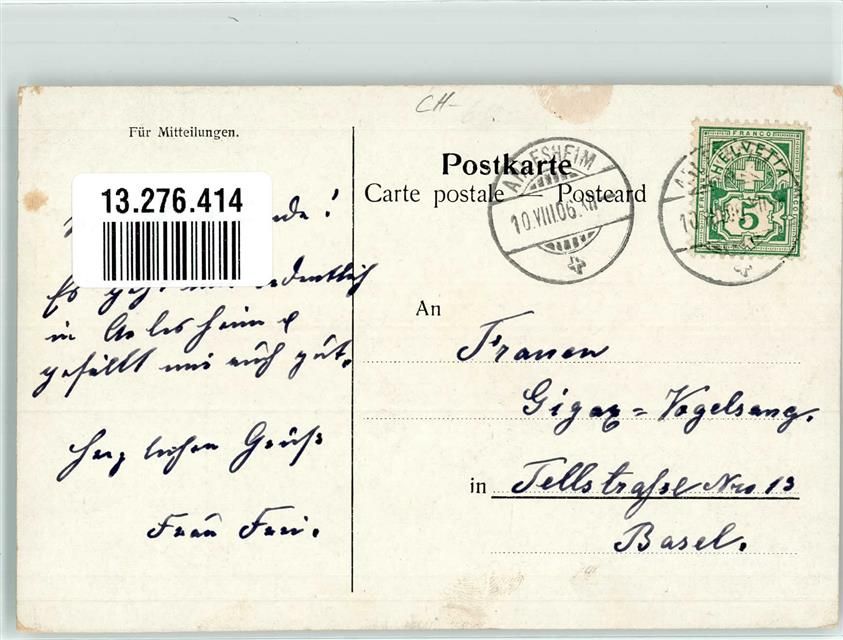 CH-
Für Mitteilungen.
Postkarte
Carte postale — Postcard
ARLESHEIM
10.VIII.06.
FRANCO
HELVETIA
5
13.276.414
Es geht uns ordentlich
in Arlesheim &
gefällt uns auch gut.
Herzlichen Gruß
Frau Frei.
An
Frauen
Gigax=Vogelsang.
in Tellstraße Nro 13
Basel.